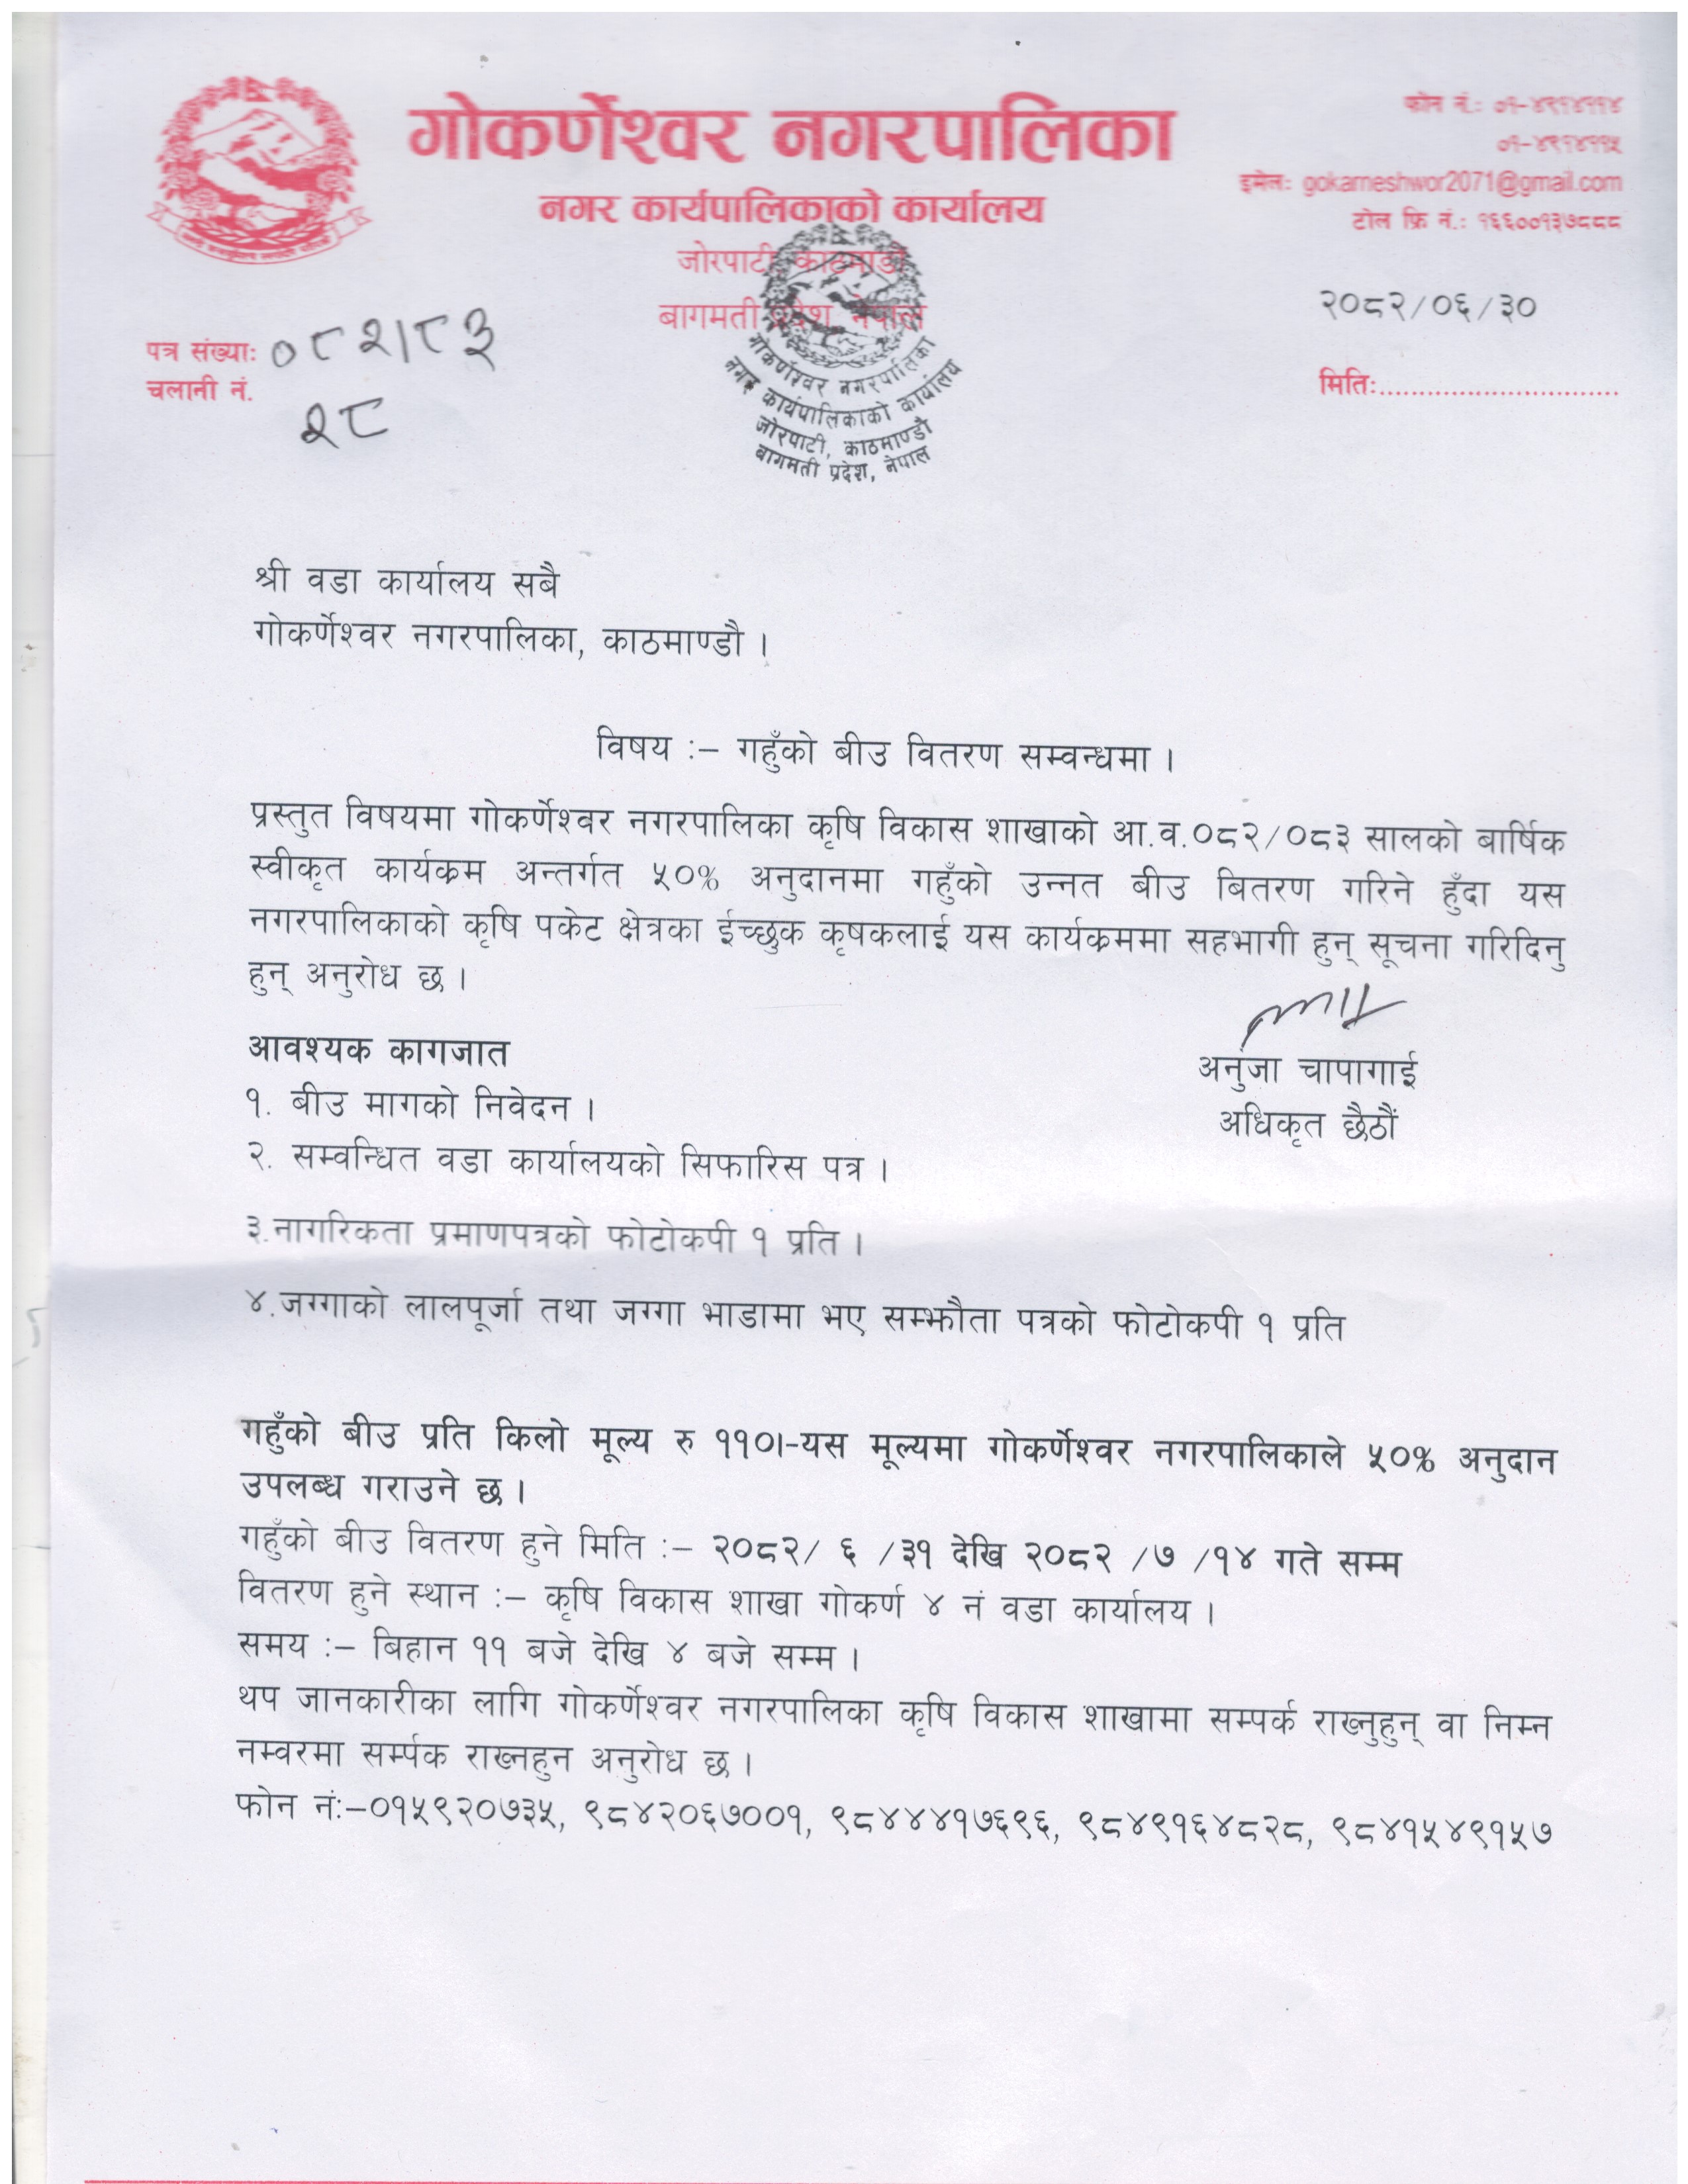 गोकर्णेश्वर नगरपालिका
नगर कार्यपालिकाको कार्यालय
जोरपाटी, काठमाडौं
बागमती प्रदेश, नेपाल
फोन नं.: ०१-४९१४११४
०१-४९१४११५
इमेल: gokarneshwor2071@gmail.com
टोल फ्रि नं.: १६६००१३७८८८
२०८२/०६/३०
पत्र संख्या: ०८२/८३
चलानी नं.
२८
मिति:..............................
गोकर्णेश्वर नगरपालिका
नगर कार्यपालिकाको कार्यालय
जोरपाटी, काठमाण्डौ
बागमती प्रदेश, नेपाल
श्री वडा कार्यालय सबै
गोकर्णेश्वर नगरपालिका, काठमाण्डौ ।
विषय :– गहुँको बीउ वितरण सम्वन्धमा ।
प्रस्तुत विषयमा गोकर्णेश्वर नगरपालिका कृषि विकास शाखाको आ.व.०८२/०८३ सालको बार्षिक
स्वीकृत कार्यक्रम अन्तर्गत ५०% अनुदानमा गहुँको उन्नत बीउ बितरण गरिने हुँदा यस
नगरपालिकाको कृषि पकेट क्षेत्रका ईच्छुक कृषकलाई यस कार्यक्रममा सहभागी हुन् सूचना गरिदिनु
हुन् अनुरोध छ ।
आवश्यक कागजात
१. बीउ मागको निवेदन ।
अनुजा चापागाई
अधिकृत छैठौं
२. सम्वन्धित वडा कार्यालयको सिफारिस पत्र ।
३.नागरिकता प्रमाणपत्रको फोटोकपी १ प्रति ।
४.जग्गाको लालपूर्जा तथा जग्गा भाडामा भए सम्झौता पत्रको फोटोकपी १ प्रति
गहुँको बीउ प्रति किलो मूल्य रु ११०।-यस मूल्यमा गोकर्णेश्वर नगरपालिकाले ५०% अनुदान
उपलब्ध गराउने छ ।
गहुँको बीउ वितरण हुने मिति :– २०८२/ ६ /३१ देखि २०८२ /७ /१४ गते सम्म
वितरण हुने स्थान :– कृषि विकास शाखा गोकर्ण ४ नं वडा कार्यालय ।
समय :– बिहान ११ बजे देखि ४ बजे सम्म ।
थप जानकारीका लागि गोकर्णेश्वर नगरपालिका कृषि विकास शाखामा सम्पर्क राख्नुहुन् वा निम्न
नम्वरमा सर्म्पक राख्नहुन अनुरोध छ ।
फोन नं:–०१५९२०७३५, ९८४२०६७००१, ९८४४४१७६९६, ९८४९१६४८२८, ९८४१५४९१५७